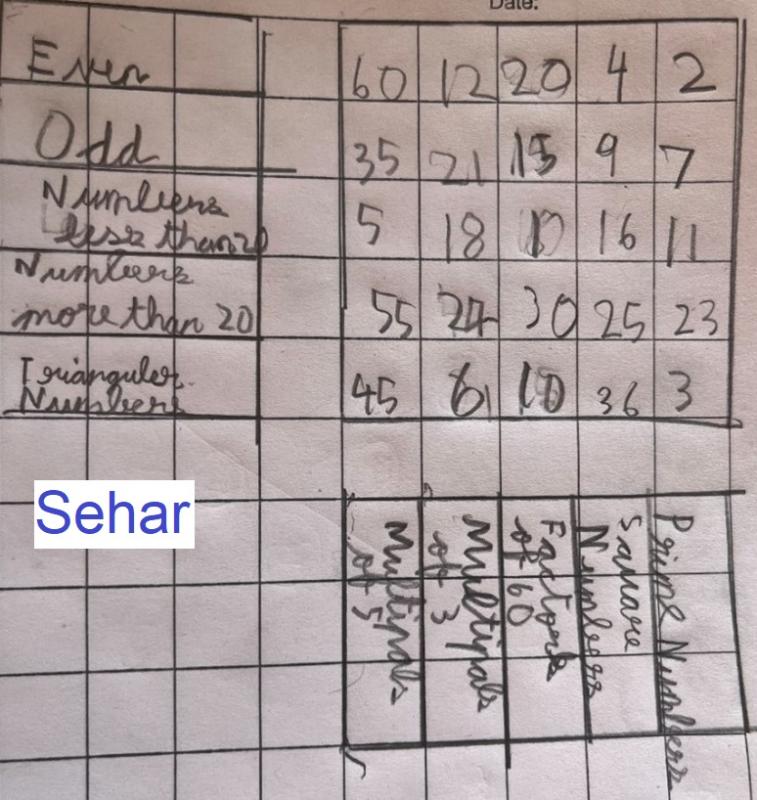 Date:
Even 60 12 20 4 2
Odd 35 21 15 9 7
Numbers
less than 20 5 18 16 11
Numbers
more than 20 55 24 30 25 23
Trianguler
Numbers 45 6 10 36 3
Sehar
Multipals
of 5
Multipals
of 3
Factors
of 60
Square
Numbers
Prime Numbers